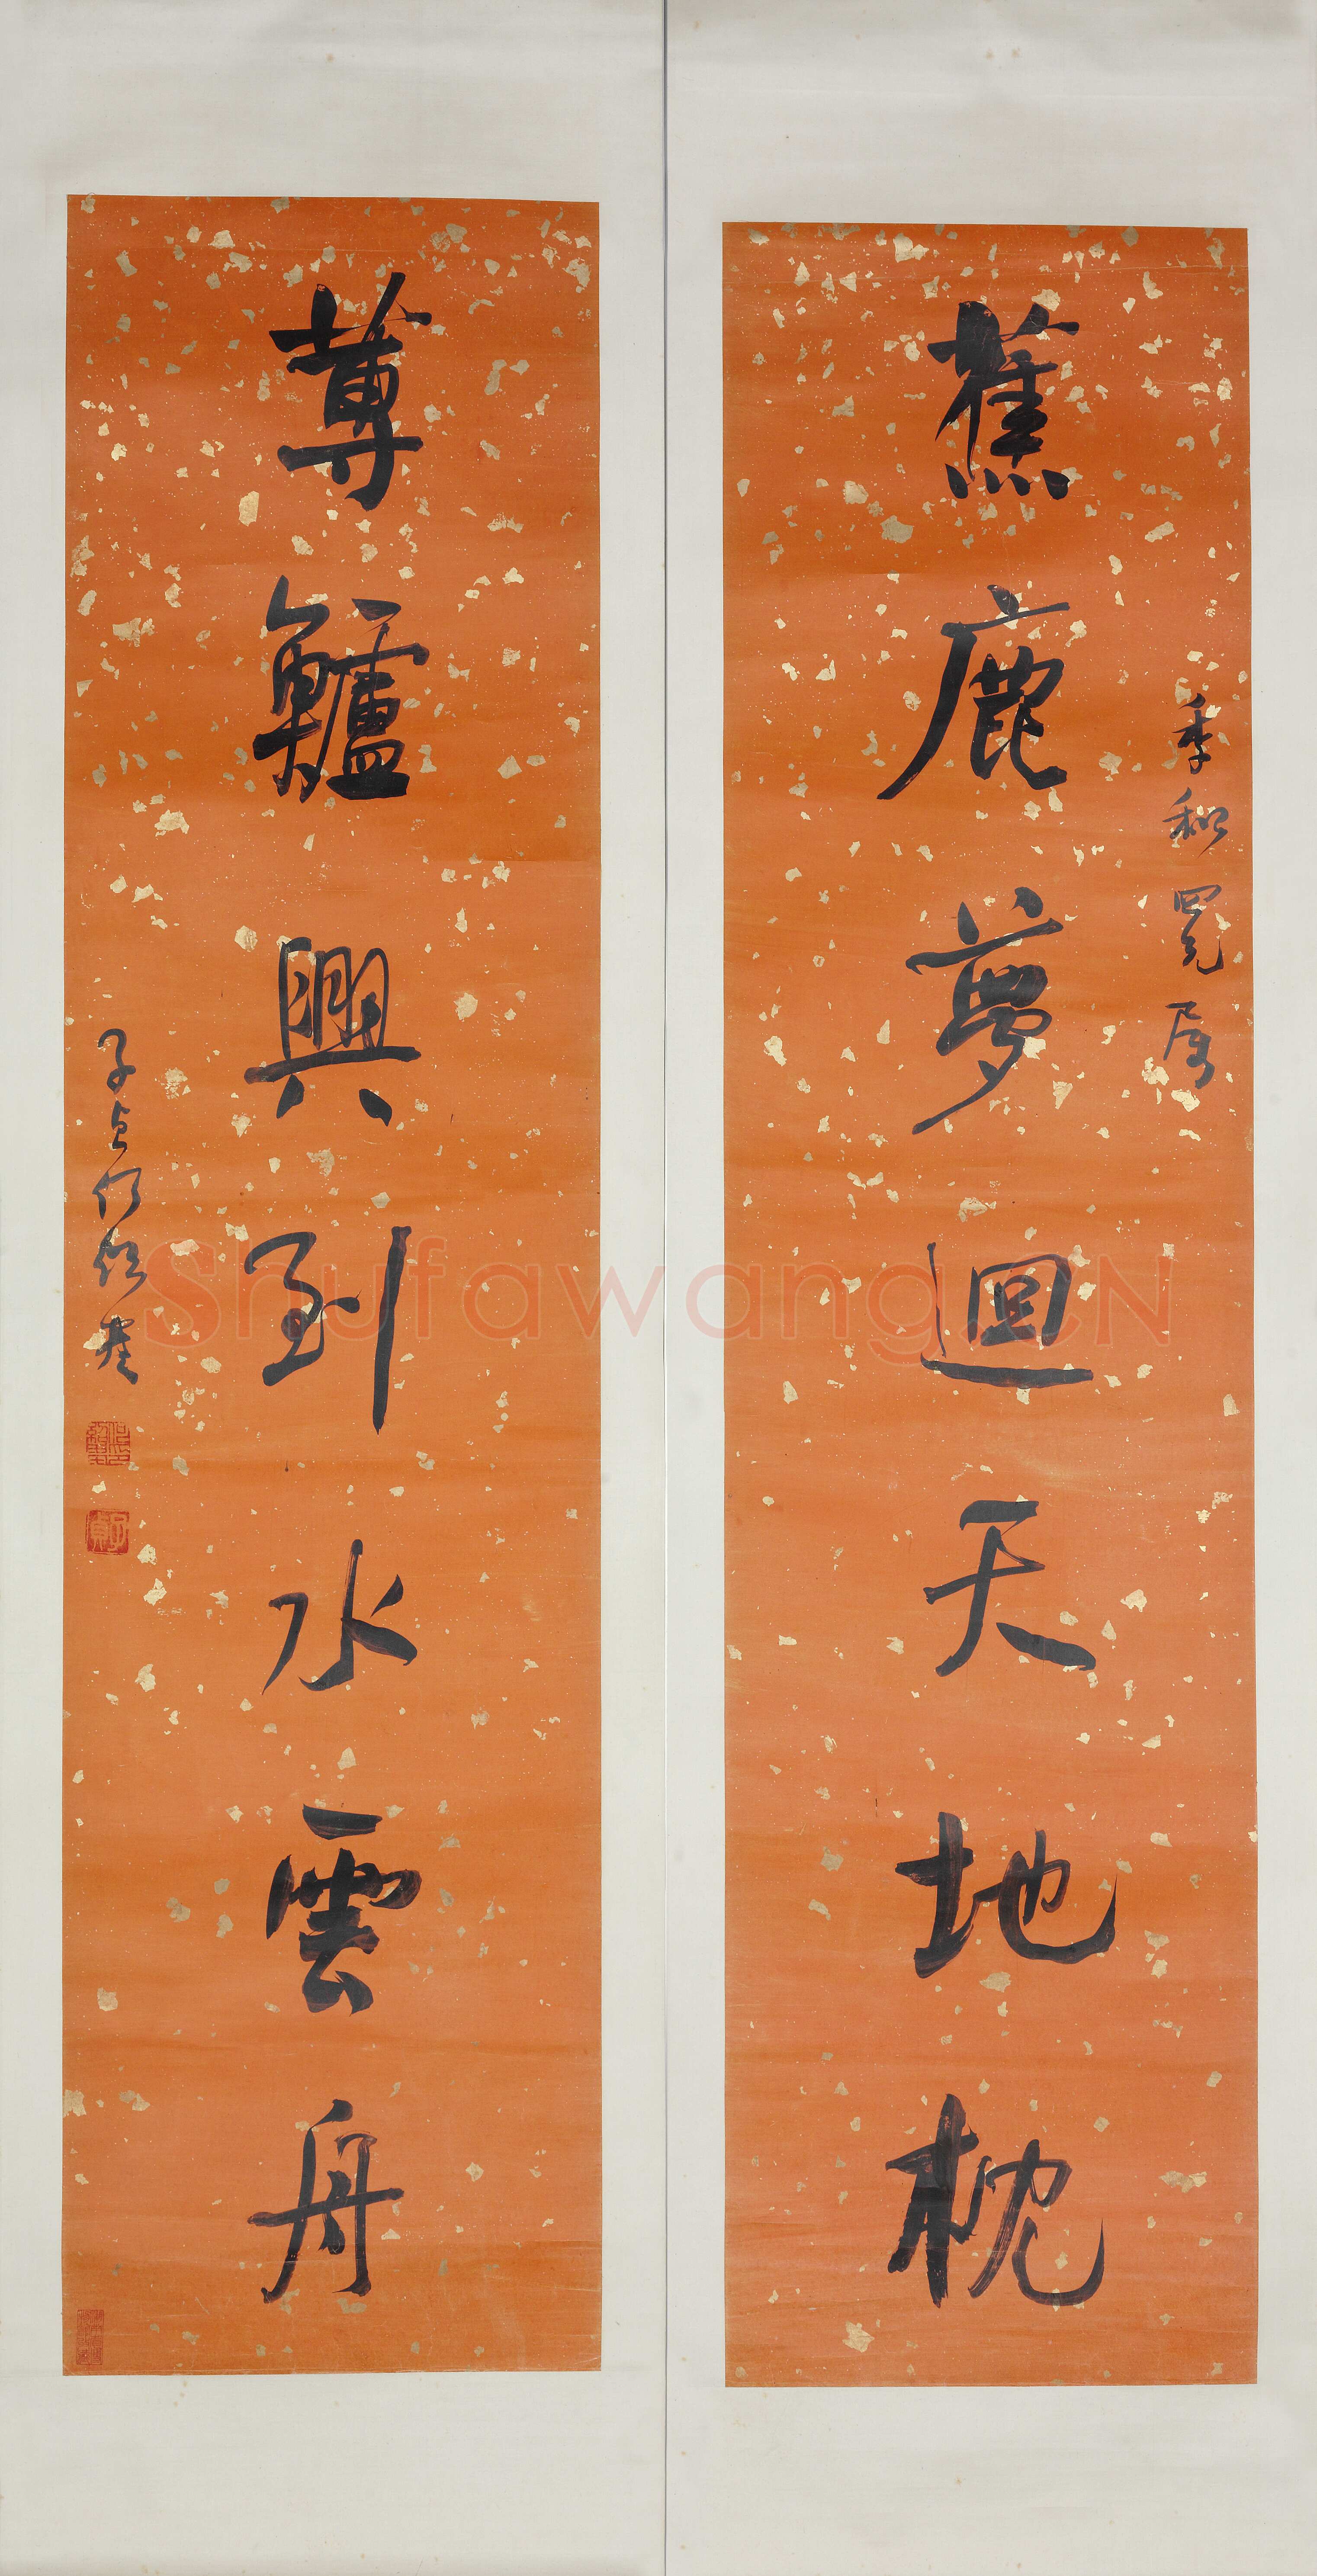 蕉鹿夢迴天地枕
季和四兄屬
蓴鱸興到水雲舟
子貞何紹基
子貞
ShufawangCN